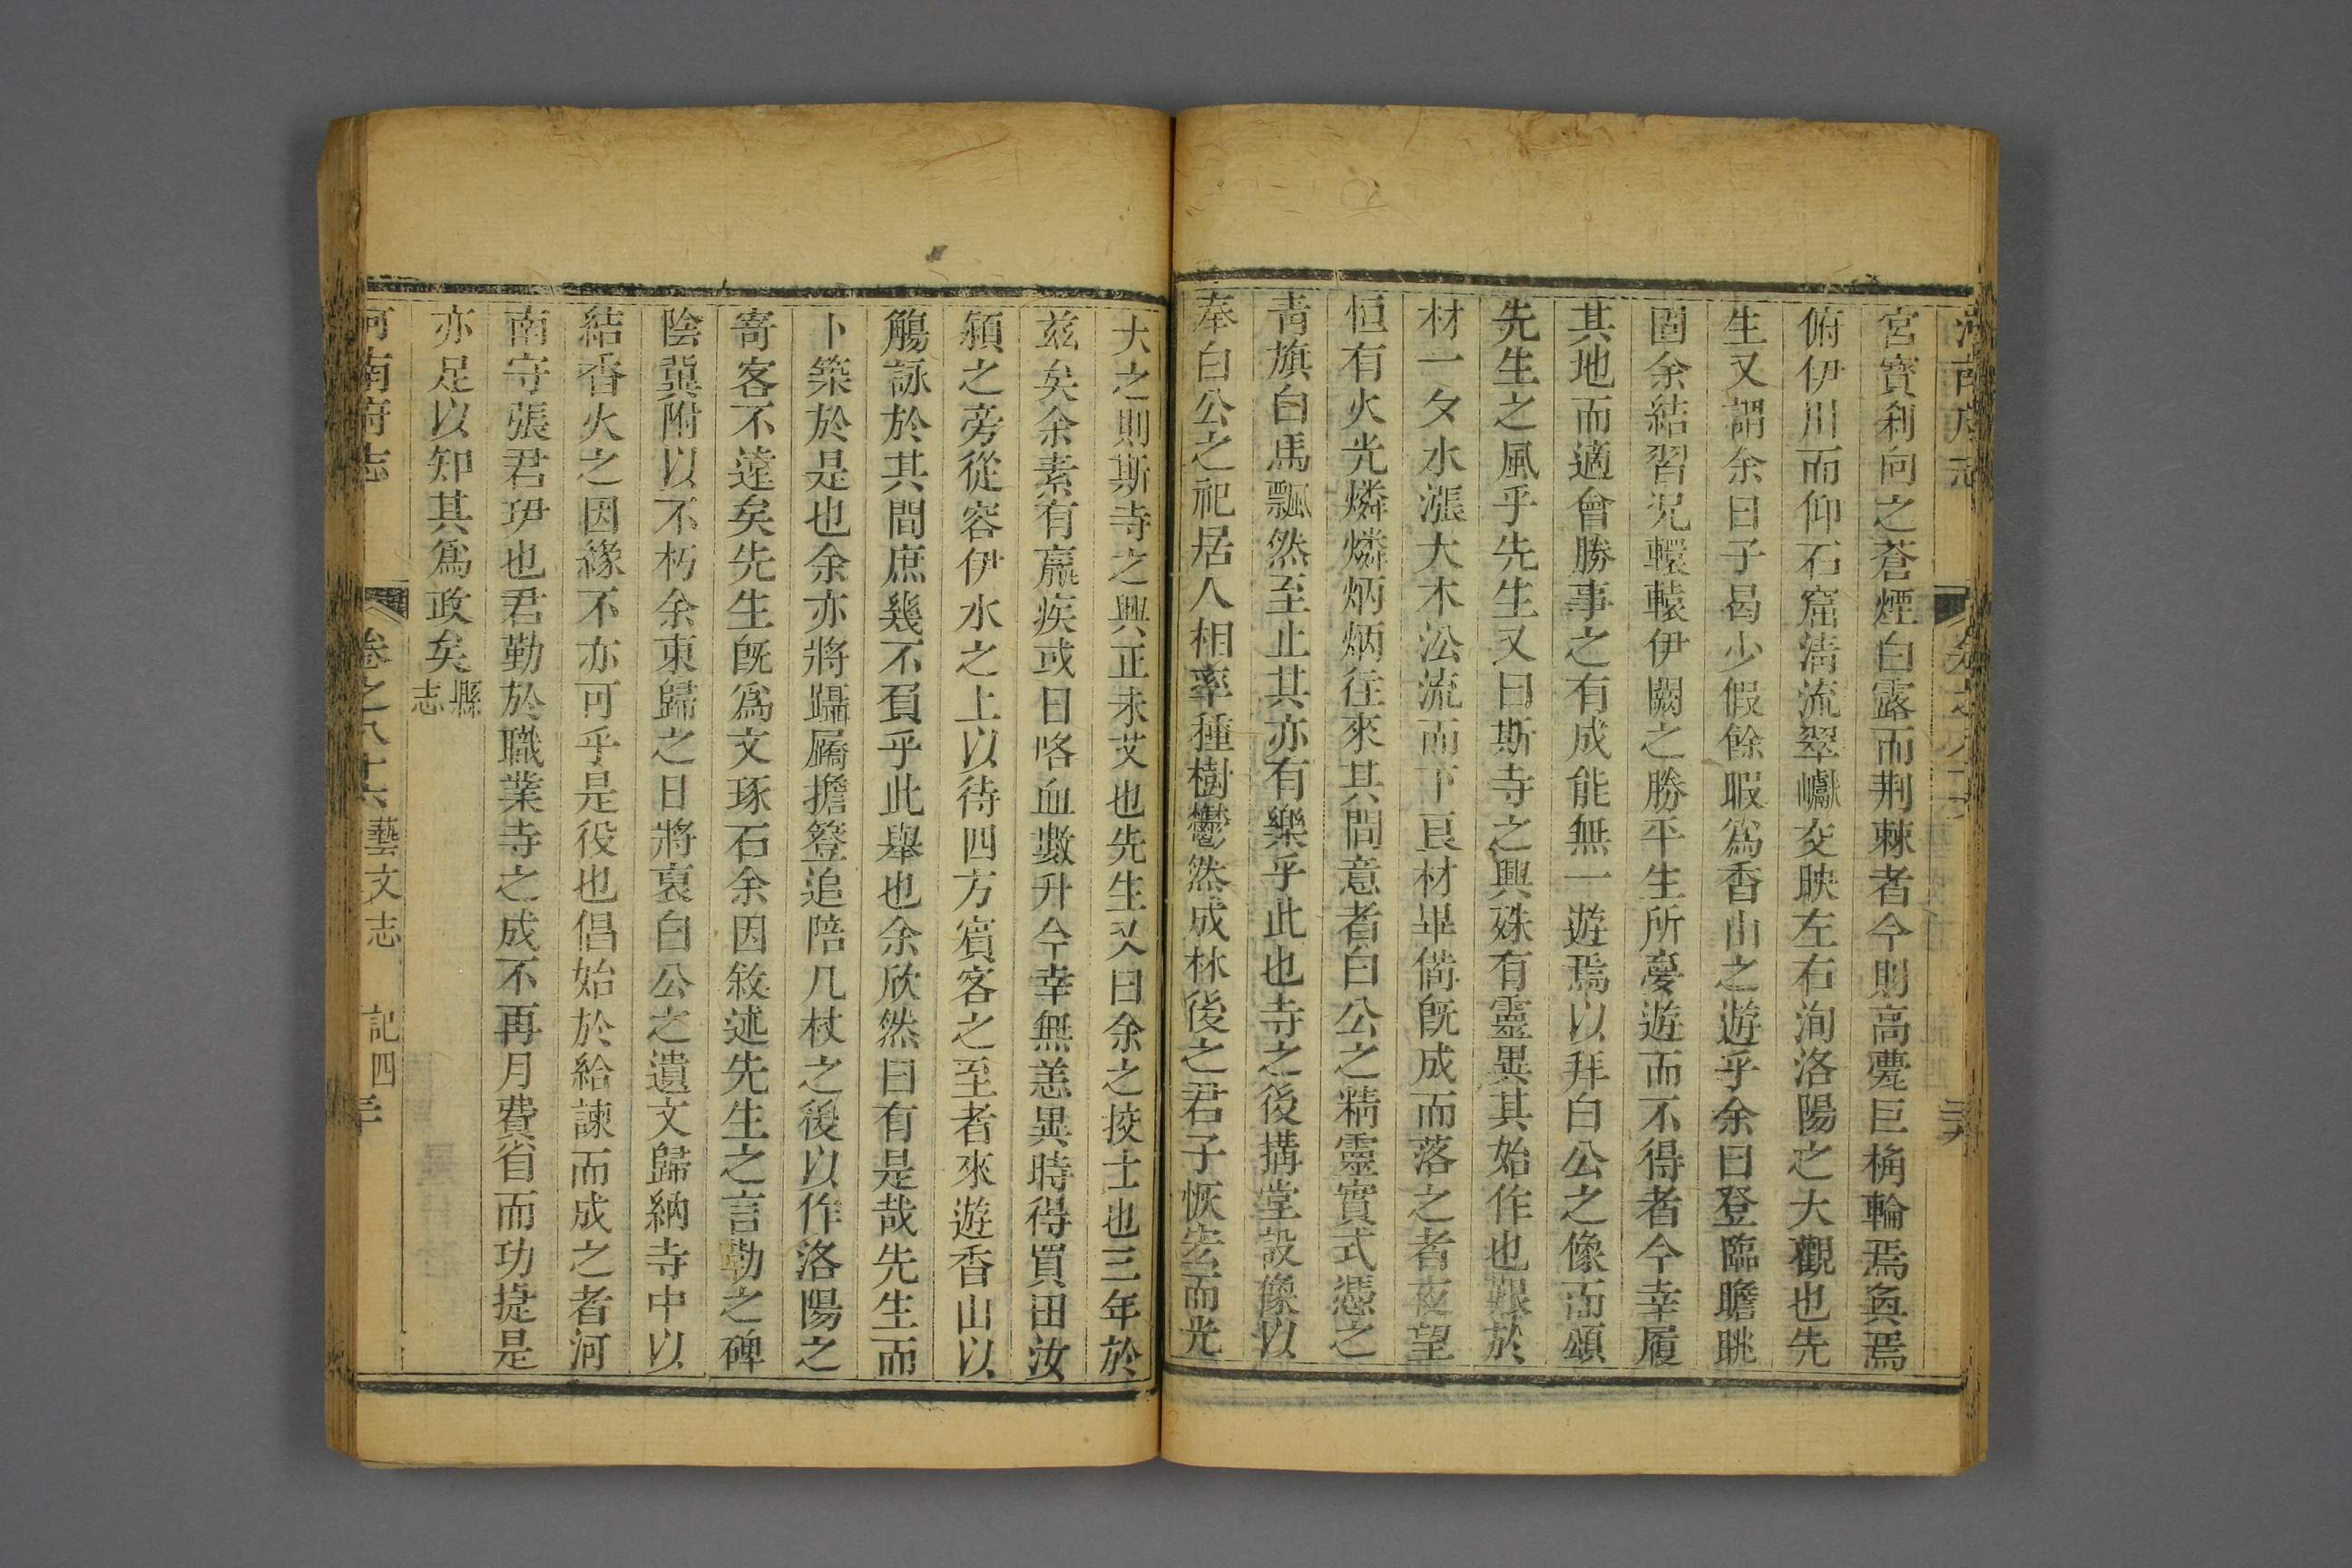 河南府志 卷之八十六
宮寶刹向之蒼煙白露而荆棘者今則高甍巨桷輪焉奐焉
俯伊川而仰石窟淸流翠巘交映左右洵洛陽之大觀也先
生又謂余曰子曷少假餘暇爲香山之遊乎余曰登臨瞻眺
固余結習况轘轅伊闕之勝平生所夢遊而不得者今幸履
其地而適會勝事之有成能無一遊焉以拜白公之像而頌
先生之風乎先生又曰斯寺之興殊有靈異其始作也艱於
材一夕水漲大木㳂流而下良材畢備旣成而落之者夜望
恒有火光燐燐炳炳往來其間意者白公之精靈實式憑之
靑旗白馬飄然至止其亦有樂乎此也寺之後搆堂設像以
奉白公之祀居人相率種樹鬱然成林後之君子恢宏而光
大之則斯寺之興正未艾也先生又曰余之挍士也三年於
兹矣余素有羸疾或日咯血數升今幸無恙異時得買田汝
潁之旁從容伊水之上以待四方賓客之至者來遊香山以
觴詠於其間庶幾不負乎此舉也余欣然曰有是哉先生而
卜築於是也余亦將躡屩擔簦追陪几杖之後以作洛陽之
寄客不遠矣先生旣爲文琢石余因敘述先生之言勒之碑
陰冀附以不朽余東歸之日將裒白公之遺文歸納寺中以
結香火之因緣不亦可乎是役也倡始於給諫而成之者河
南守張君玾也君勤於職業寺之成不再月費省而功㨗是
亦足以知其爲政矣 縣志
河南府志 卷之八十六 藝文志 記四